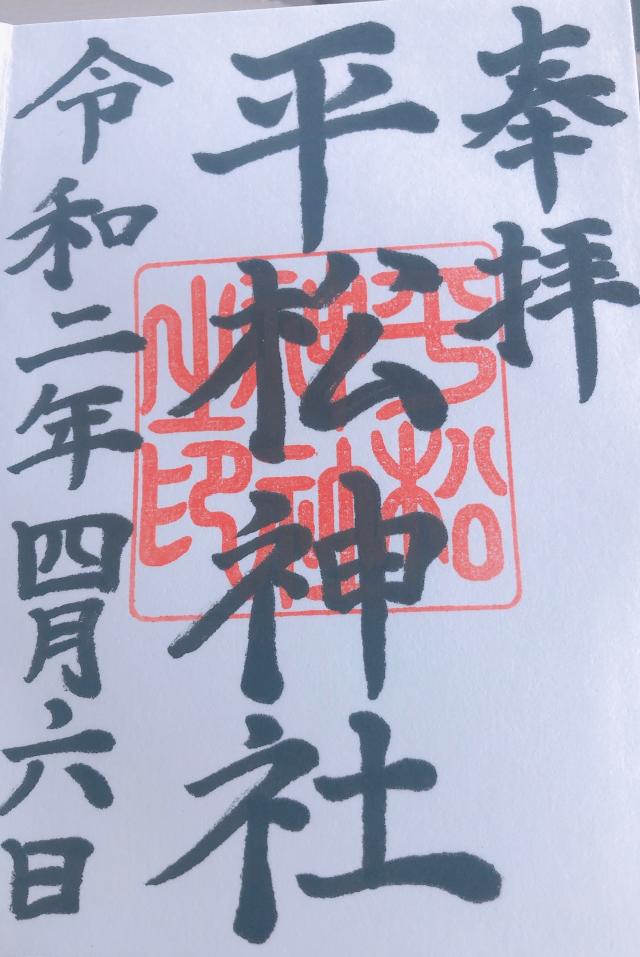 奉拝
平松神社
令和二年四月六日
平松
神社
之印